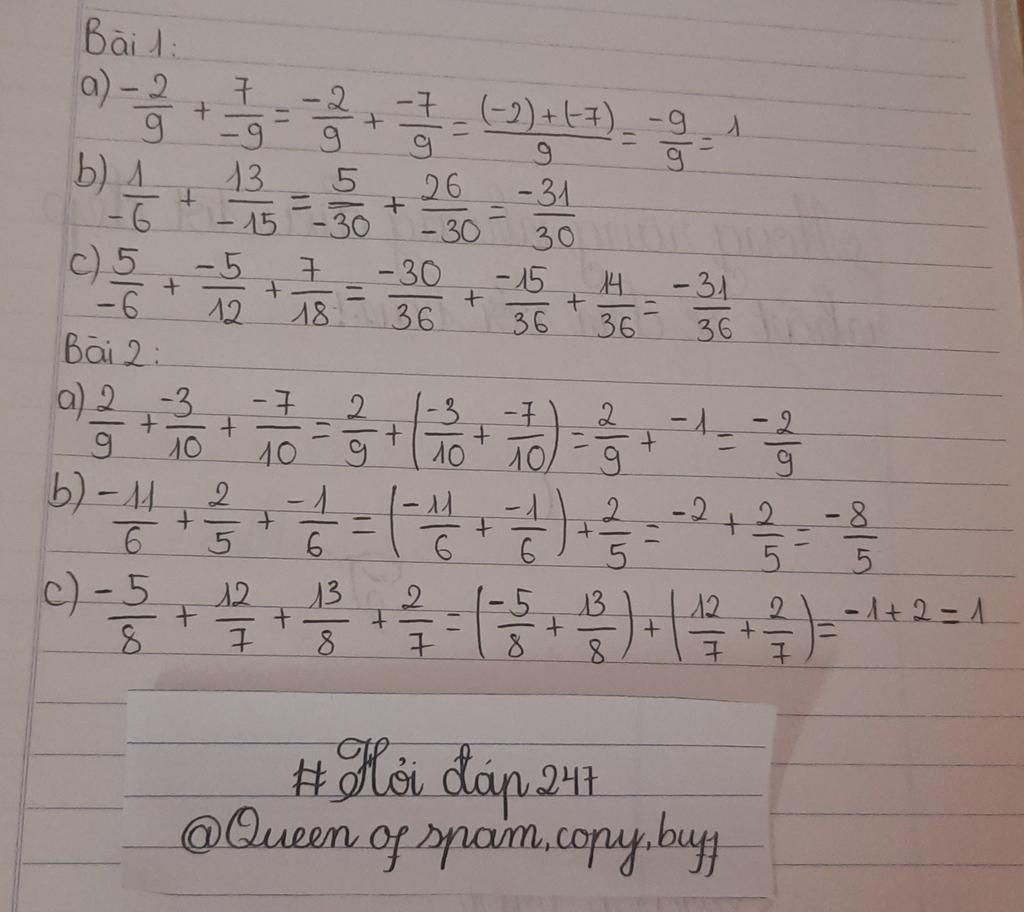 Bài 1:
a) -2/9 + 7/-9 = -2/9 + -7/9 = (-2)+(-7)/9 = -9/9 = 1
b) 1/-6 + 13/-15 = 5/-30 + 26/-30 = -31/30
c) 5/-6 + -5/12 + 7/18 = -30/36 + -15/36 + 14/36 = -31/36
Bài 2:
a) 2/9 + -3/10 + -7/10 = 2/9 + (-3/10 + -7/10) = 2/9 + -1 = -2/9
b) -11/6 + 2/5 + -1/6 = (-11/6 + -1/6) + 2/5 = -2 + 2/5 = -8/5
c) -5/8 + 12/7 + 13/8 + 2/7 = (-5/8 + 13/8) + (12/7 + 2/7) = -1 + 2 = 1
# Hỏi đáp 247
@Queen of spam, copy, buff